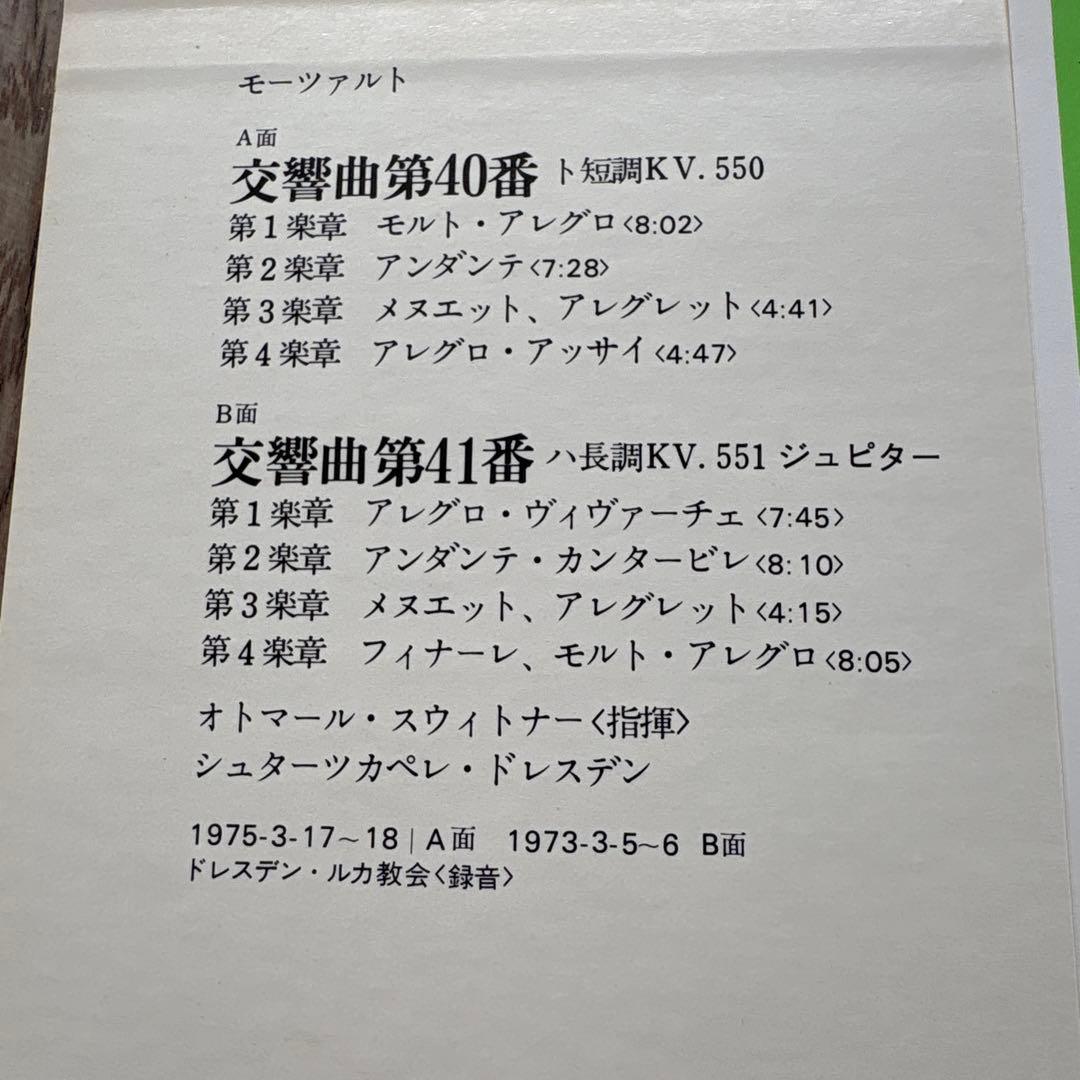 モーツァルト
A面
交響曲第40番 ト短調KV. 550
第1楽章 モルト・アレグロ〈8:02〉
第2楽章 アンダンテ〈7:28〉
第3楽章 メヌエット、アレグレット〈4:41〉
第4楽章 アレグロ・アッサイ〈4:47〉
B面
交響曲第41番 ハ長調KV. 551 ジュピター
第1楽章 アレグロ・ヴィヴァーチェ〈7:45〉
第2楽章 アンダンテ・カンタービレ〈8:10〉
第3楽章 メヌエット、アレグレット〈4:15〉
第4楽章 フィナーレ、モルト・アレグロ〈8:05〉
オトマール・スウィトナー〈指揮〉
シュターツカペレ・ドレスデン
1975-3-17～18 | A面 1973-3-5～6 B面
ドレスデン・ルカ教会〈録音〉